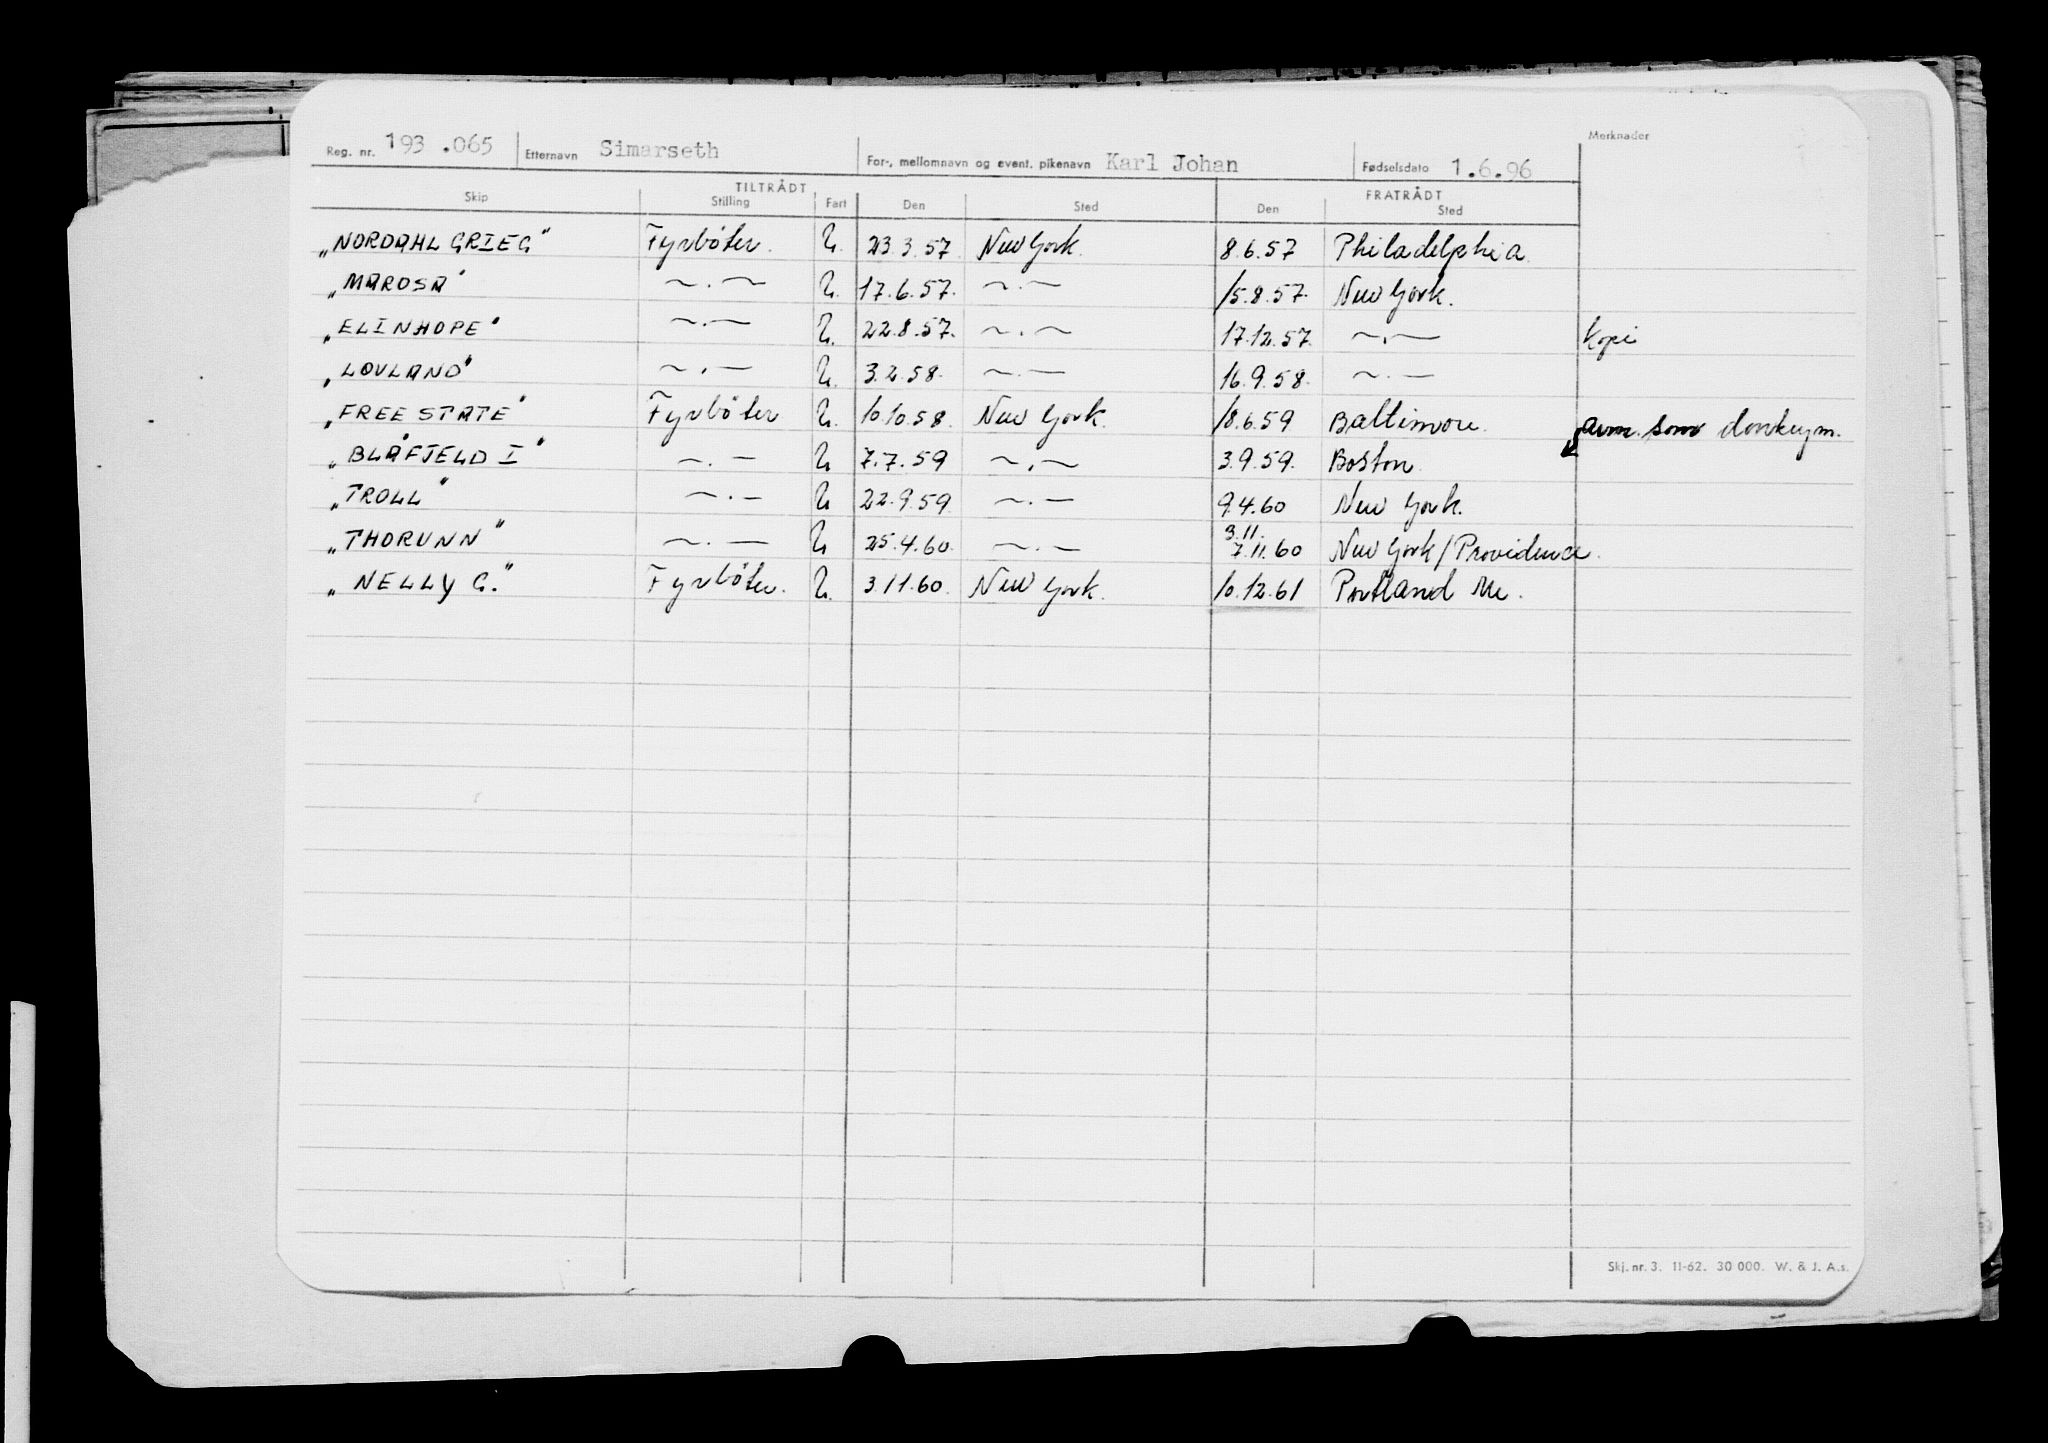 Reg. nr. 193.065 Etternavn Simarseth For-, mellomnavn og event. pikenavn Karl Johan Fødselsdato 1.6.96 Merknader
TILTRÅDT FRATRÅDT
Skip Stilling Fart Den Sted Den Sted
„NORDAHL GRIEG" Fyrbøter. U. 23.3.57 New York. 8.6.57 Philadelphia.
„MAROSA" ~.~ U. 17.6.57. ~.~ 15.8.57. New York.
„ELINHOPE" ~.~ U. 22.8.57. ~.~ 17.12.57. ~.~ Kopi
„LOVLAND" ~.~ U. 3.2.58. ~.~ 16.9.58. ~.~
„FREE STATE" Fyrbøter U. 10.10.58. New York. 18.6.59 Baltimore. avm. som donkeym.
„BLÅFJELD I" ~.~ U 7.7.59 ~.~ 3.9.59. Boston.
„TROLL" ~.~ U 22.9.59 ~.~ 9.4.60 New York.
„THORUNN" ~.~ U 25.4.60. ~.~ 3.11. 7.11.60 New York/Providence.
„NELLY G." Fyrbøter. U. 3.11.60. New York. 10.12.61 Portland Me.
Skj. nr. 3. 11-62. 30 000. W. & J. A.s.